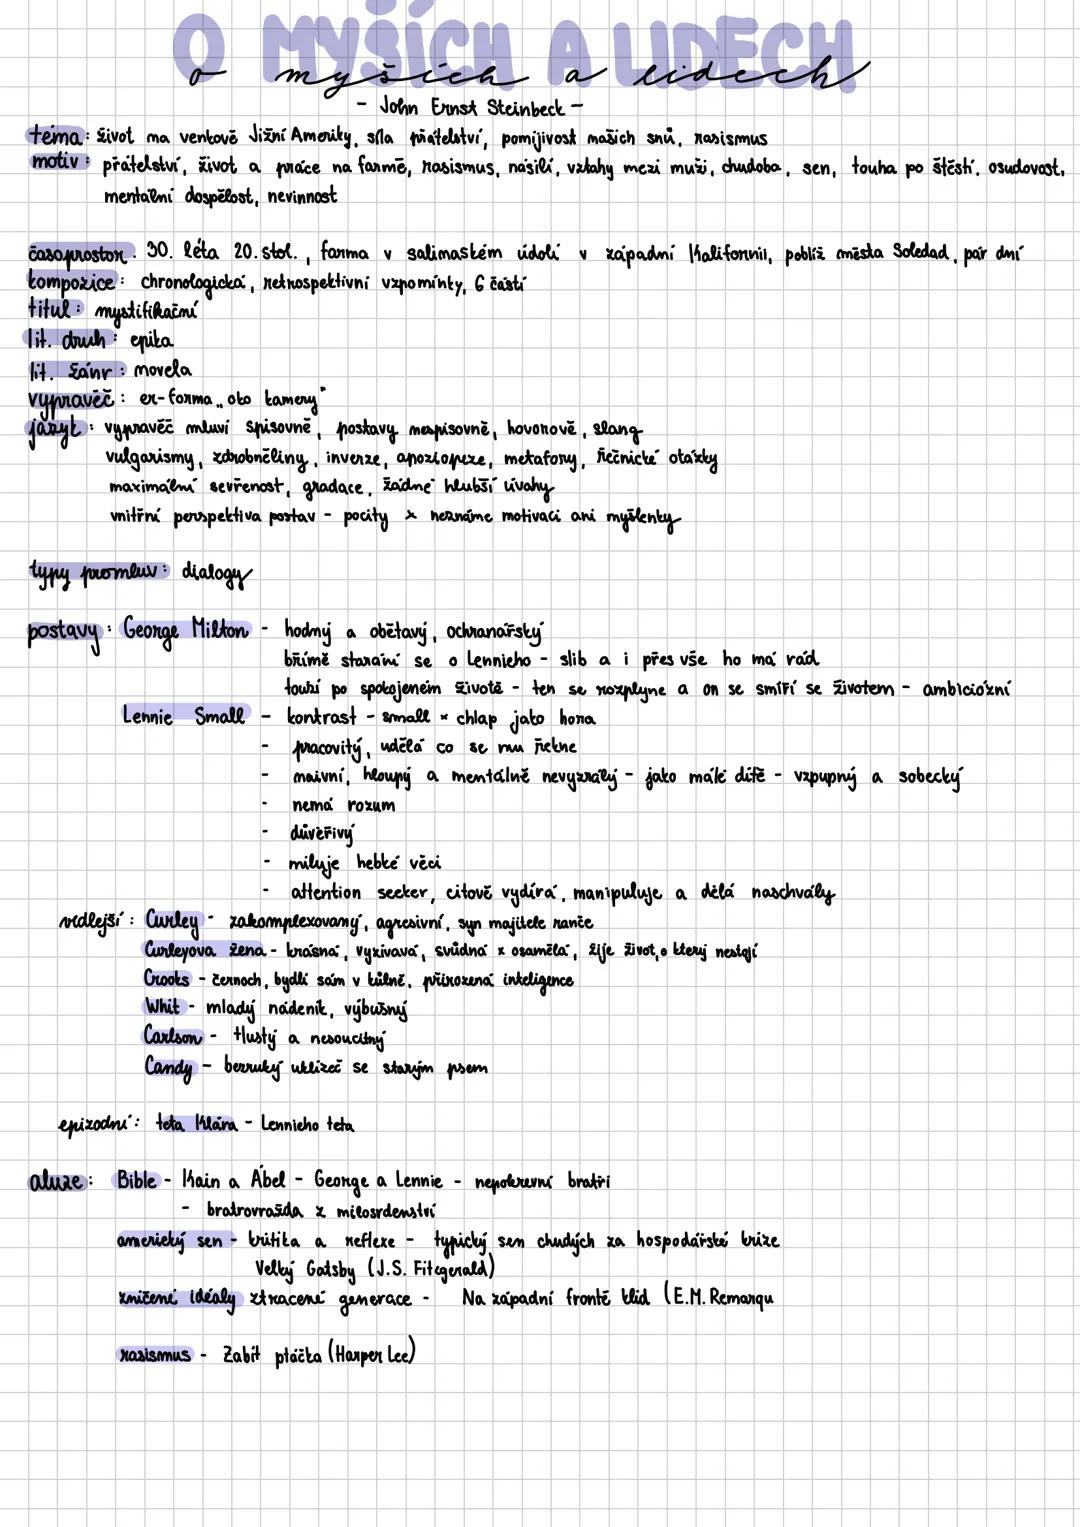 O MYŠÍCH A LIDECH
o myších a lidech
- John Ernst Steinbeck -
téma: život na venkově Jižní Ameriky, síla přátelství, pomíjivost našich snů, rasismus
motiv: přátelství, život a práce na farmě, rasismus, násilí, vztahy mezi muži, chudoba, sen, touha po štěstí, osudovost,
mentální dospělost, nevinnost
časoprostor: 30. léta 20. stol., farma v salinaském údolí v západní Kalifornii, poblíž města Soledad, pár dní
kompozice: chronologická, retrospektivní vzpomínky, 6 částí
titul: mystifikační
lit. druh: epika
lit. žánr: novela
vypravěč: er-forma „oko kamery"
jazyk: vypravěč mluví spisovně, postavy nespisovně, hovorově, slang
vulgarismy, zdrobněliny, inverze, apoziopeze, metafory, řečnické otázky
maximální sevřenost, gradace, žádné hlubší úvahy
vnitřní perspektiva postav - pocity x neznáme motivaci ani myšlenky
typy promluv: dialogy
postavy: George Milton - hodný a obětavý, ochranářský
břímě starání se o Lennieho - slib a i přes vše ho má rád
touží po spokojeném životě - ten se rozplyne a on se smíří se životem - ambiciózní
Lennie Small - kontrast - small x chlap jako hora
- pracovitý, udělá co se mu řekne
- naivní, hloupý a mentálně nevyzrálý - jako malé dítě - vzpupný a sobecký
- nemá rozum
- důvěřivý
- miluje hebké věci
- attention seeker, citově vydírá, manipuluje a dělá naschvály
vedlejší: Curley - zakomplexovaný, agresivní, syn majitele ranče
Curleyova žena - krásná, vyzívavá, svůdná x osamělá, žije život, o který nestojí
Crooks - černoch, bydlí sám v kůlně, přirozená inteligence
Whit - mladý nádeník, výbušný
Carlson - tlustý a nesoucitný
Candy - bezruký uklízeč se starým psem
epizodní: teta Klára - Lennieho teta
aluze: Bible - Kain a Ábel - George a Lennie - nepokrevní bratři
- bratrovražda z milosrdenství
americký sen - kritika a reflexe - typický sen chudých za hospodářské krize
Velký Gatsby (J.S. Fitzgerald)
zničené ideály ztracené generace - Na západní frontě klid (E.M. Remarqu
rasismus - Zabít ptáčka (Harper Lee)